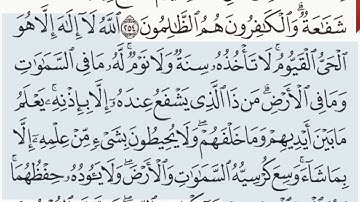 شَفَٰعَةٌۗ وَٱلْكَٰفِرُونَ هُمُ ٱلظَّٰلِمُونَ ٢٥٤ ٱللَّهُ لَآ إِلَٰهَ إِلَّا هُوَ
ٱلْحَىُّ ٱلْقَيُّومُۚ لَا تَأْخُذُهُۥ سِنَةٌ وَلَا نَوْمٌۚ لَّهُۥ مَا فِى ٱلسَّمَٰوَٰتِ
وَمَا فِى ٱلْأَرْضِۗ مَن ذَا ٱلَّذِى يَشْفَعُ عِندَهُۥٓ إِلَّا بِإِذْنِهِۦۚ يَعْلَمُ
مَا بَيْنَ أَيْدِيهِمْ وَمَا خَلْفَهُمْۖ وَلَا يُحِيطُونَ بِشَىْءٍ مِّنْ عِلْمِهِۦٓ إِلَّا
بِمَا شَآءَۚ وَسِعَ كُرْسِيُّهُ ٱلسَّمَٰوَٰتِ وَٱلْأَرْضَۖ وَلَا يَـُٔودُهُۥ حِفْظُهُمَاۚ